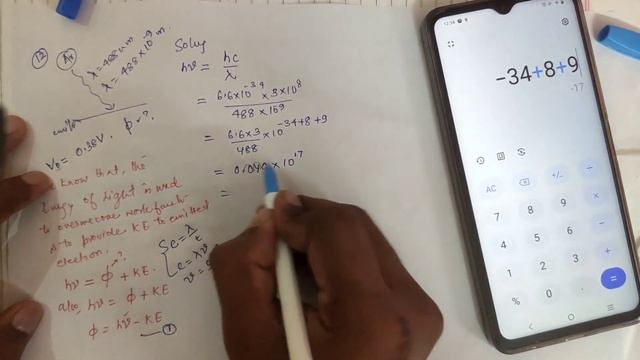 12 Ar λ = 488 nm.
λ = 488 × 10⁻⁹ m.
emitter
V₀ = 0.38V. φ = ?
know that, the
Energy of light is used
to overcome work funct
& to provide KE to emitted
electron.
hν = φ + KE.
also, hν = φ + KE
φ = hν - KE
①
c = λν
Soluⁿ
hν = hc/λ
= 6.6×10⁻³⁴ × 3×10⁸ / 488 × 10⁻⁹
= 6.6×3/488 × 10⁻³⁴⁺⁸⁺⁹
= 0.040 × 10⁻¹⁷
=
12:34
-34+8+9
-17
AC +/- ÷
7 8 9 ×
4 5 6 −
1 2 3 +
% 0 . =